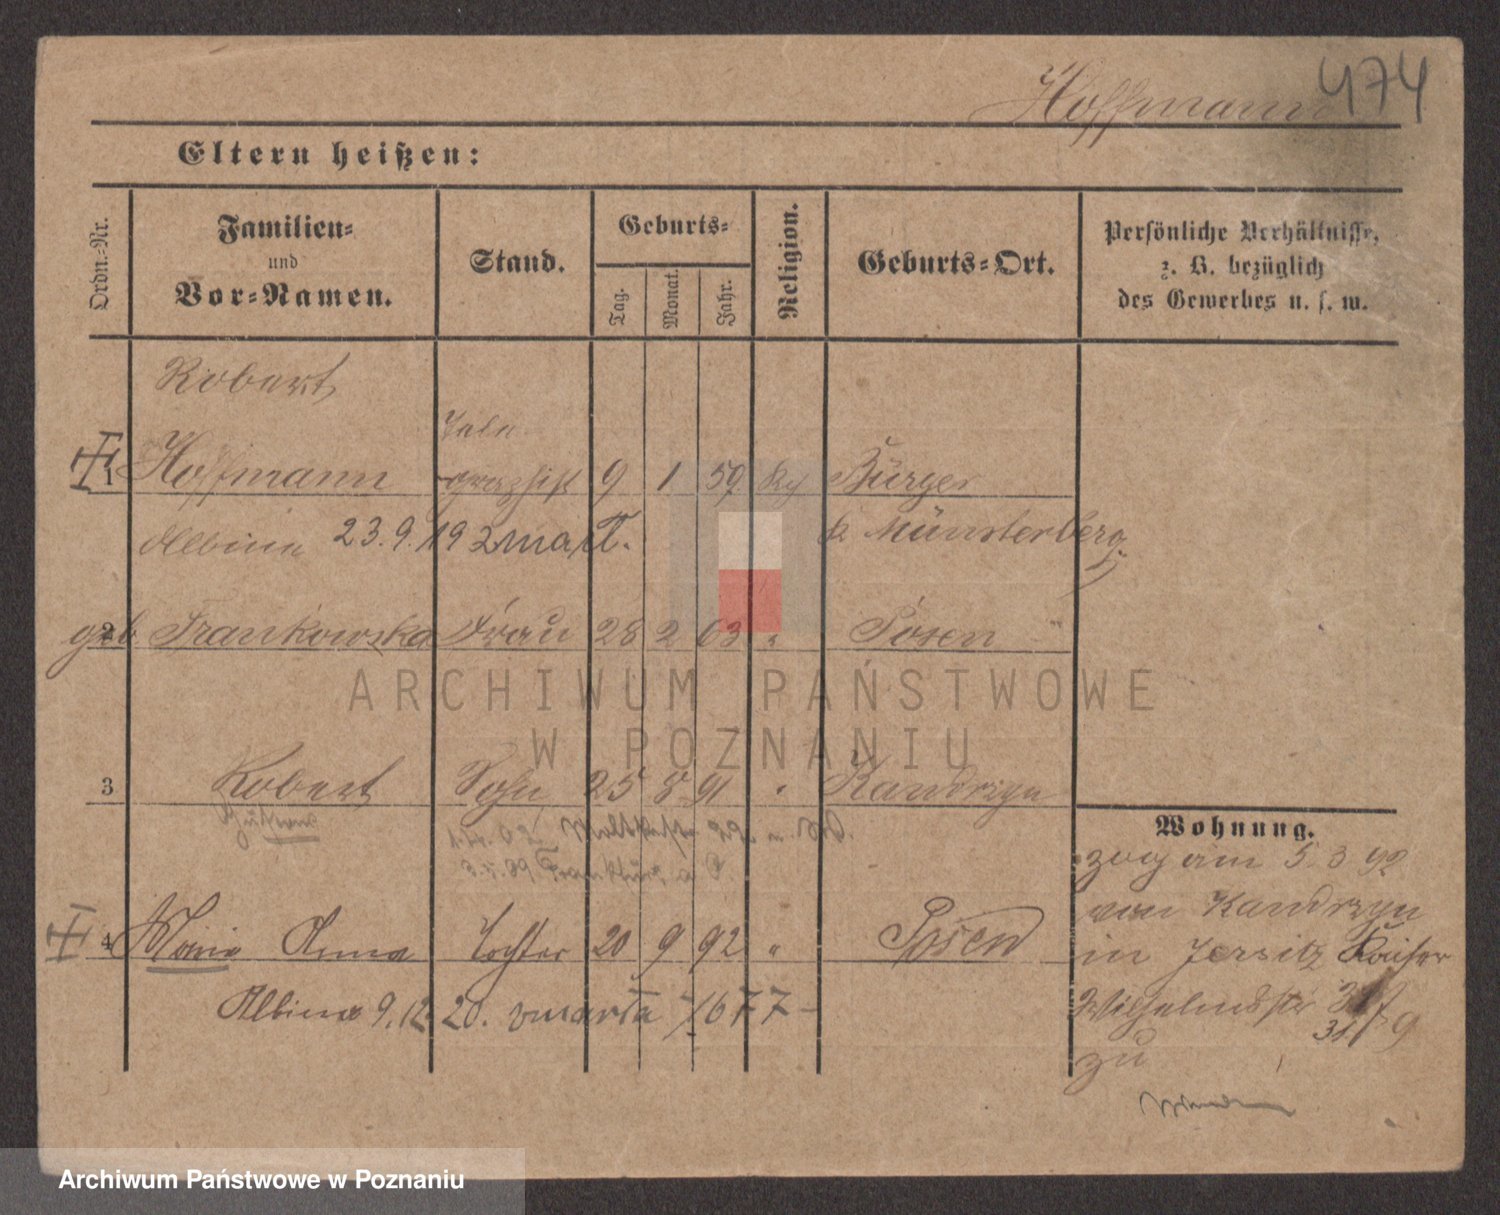 Hoffmann 474
Eltern heißen:
Ordn.-Nr.
Familien-
und
Vor-Namen.
Stand.
Geburts-
Tag.
Monat.
Jahr.
Religion.
Geburts-Ort.
Persönliche Verhältnisse,
z. B. bezüglich
des Gewerbes u. s. w.
Robert
Tele-
1 Hoffmann graphist 9 1 59 Bürger
Albine 23.9.19 zmarł. Münsterberg
2 geb Frankowska Frau 28 2 63 " Posen "
ARCHIWUM PAŃSTWOWE
W POZNANIU
3 Robert Sohn 25 8 91 " Kandrzyn
Gustav
Frankfurt a O.
4 Maria Anna Tochter 20 9 92 " Posen
Albina 9.12. 20. zmarła
Wohnung.
zog am 5. 3 92
von Kandrzyn
in Jersitz Kaiser
Wilhelmstr
zu
Archiwum Państwowe w Poznaniu